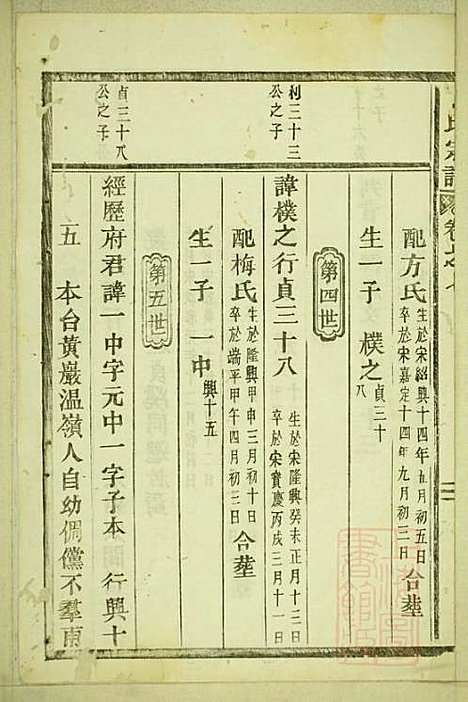 氏宗譜 卷之七
配方氏 生於宋紹興十四年五月初五日
卒於宋嘉定十四年九月初三日 合塟
生一子 樸之 貞三十
八
第四世
利三十三
公之子
諱樸之行貞三十八 生於宋隆興癸未正月十三日
卒於宋寳慶丙戌三月十一日
配梅氏 生於隆興甲申三月初十日
卒於端平甲午四月初三日 合塟
生一子 一中 興十五
第五世
貞三十八
公之子
經歷府君諱一中字元中一字子本 行興十
五 本台黃巖温嶺人自幼倜儻不羣南